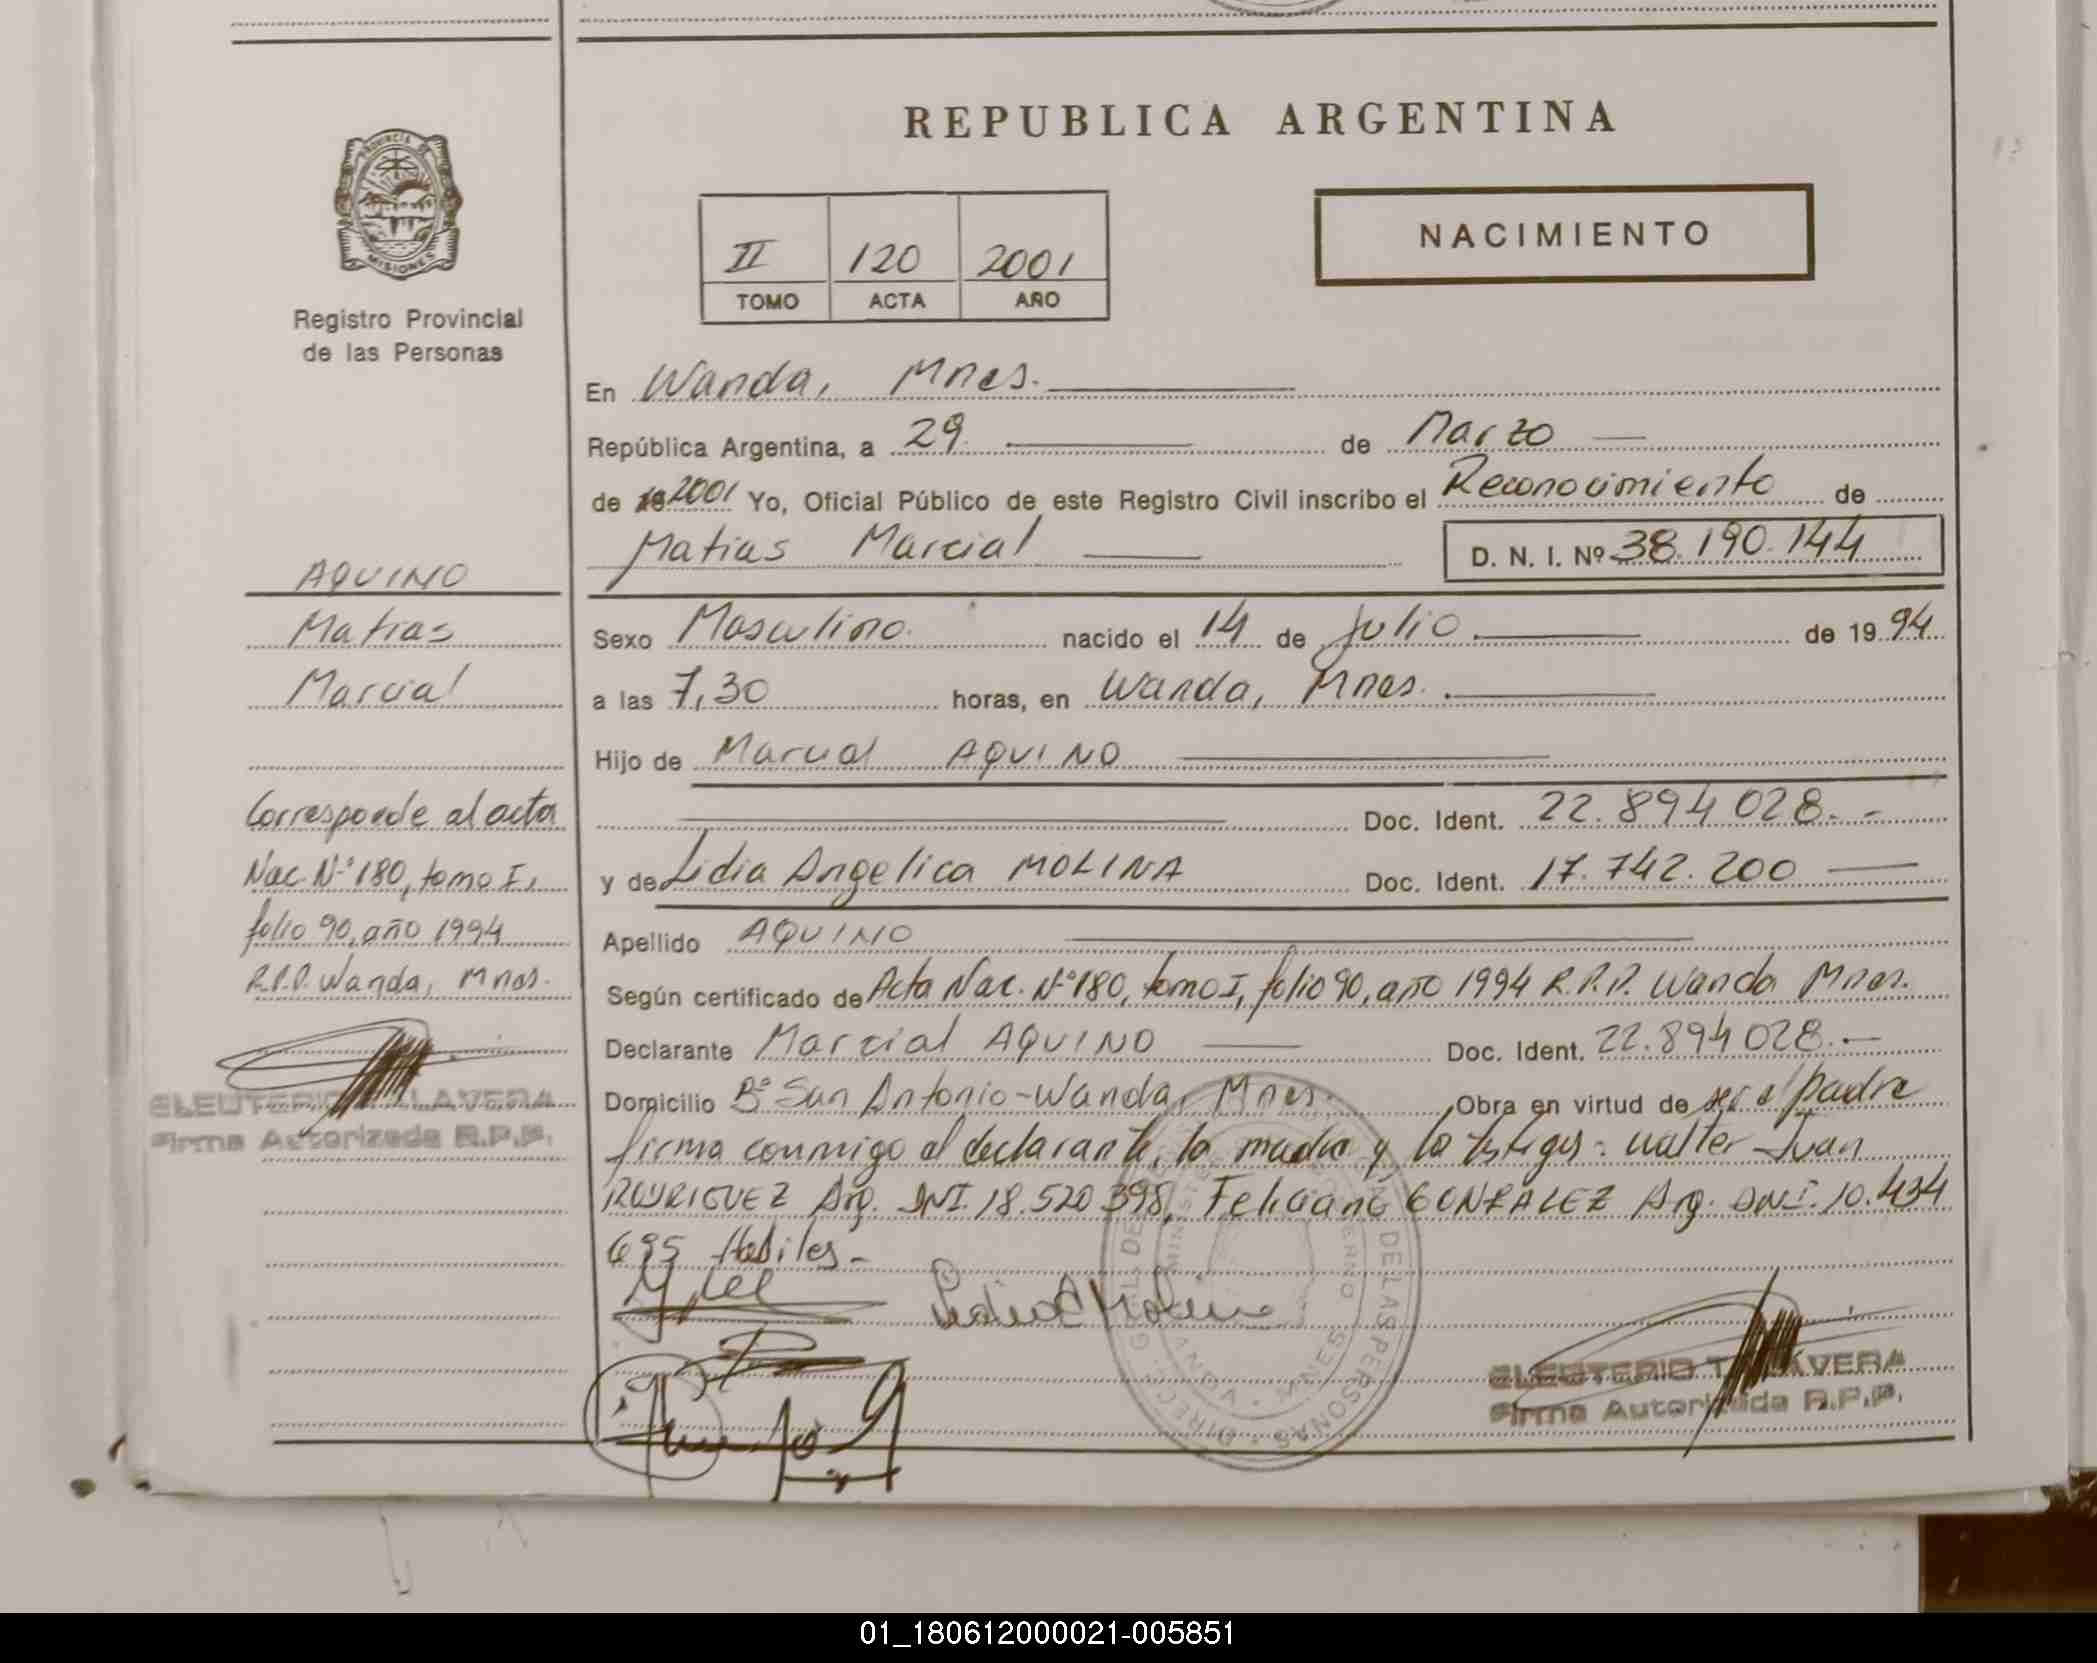 REPUBLICA ARGENTINA
PROVINCIA DE
MISIONES
Registro Provincial
de las Personas
II 120 2001
TOMO ACTA AÑO
NACIMIENTO
En Wanda, Mnes.
República Argentina, a 29 de Marzo
de 19 2001 Yo, Oficial Público de este Registro Civil inscribo el Reconocimiento de
Matias Marcial D. N. I. Nº 38.190.144
AQUINO
Matias
Marcial
Sexo Masculino. nacido el 14 de Julio de 19 94
a las 7,30 horas, en Wanda, Mnes.
Hijo de Marcial AQUINO
Doc. Ident. 22.894028.-
y de Lidia Angelica MOLINA Doc. Ident. 17.742.200
Apellido AQUINO
Según certificado de Acta Nac. Nº 180, tomo I, folio 90, año 1994 R.P.P. Wanda Mnes.
Declarante Marcial AQUINO Doc. Ident. 22.894028.-
Domicilio Bº San Antonio-Wanda, Mnes. Obra en virtud de ser el padre
firma conmigo el declarante, la madre y los testigos: Walter Ivan
RODRIGUEZ Arg. DNI. 18.520.398, Feliciano GONZALEZ Arg. DNI. 10.434
695 Habiles-
Corresponde al acta
Nac. Nº 180, tomo I,
folio 90, año 1994
R.P.P. Wanda, Mnes.
ELEUTERIO TALAVERA
Firma Autorizada R.P.P.
ELEUTERIO TALAVERA
Firma Autorizada R.P.P.
01_180612000021-005851